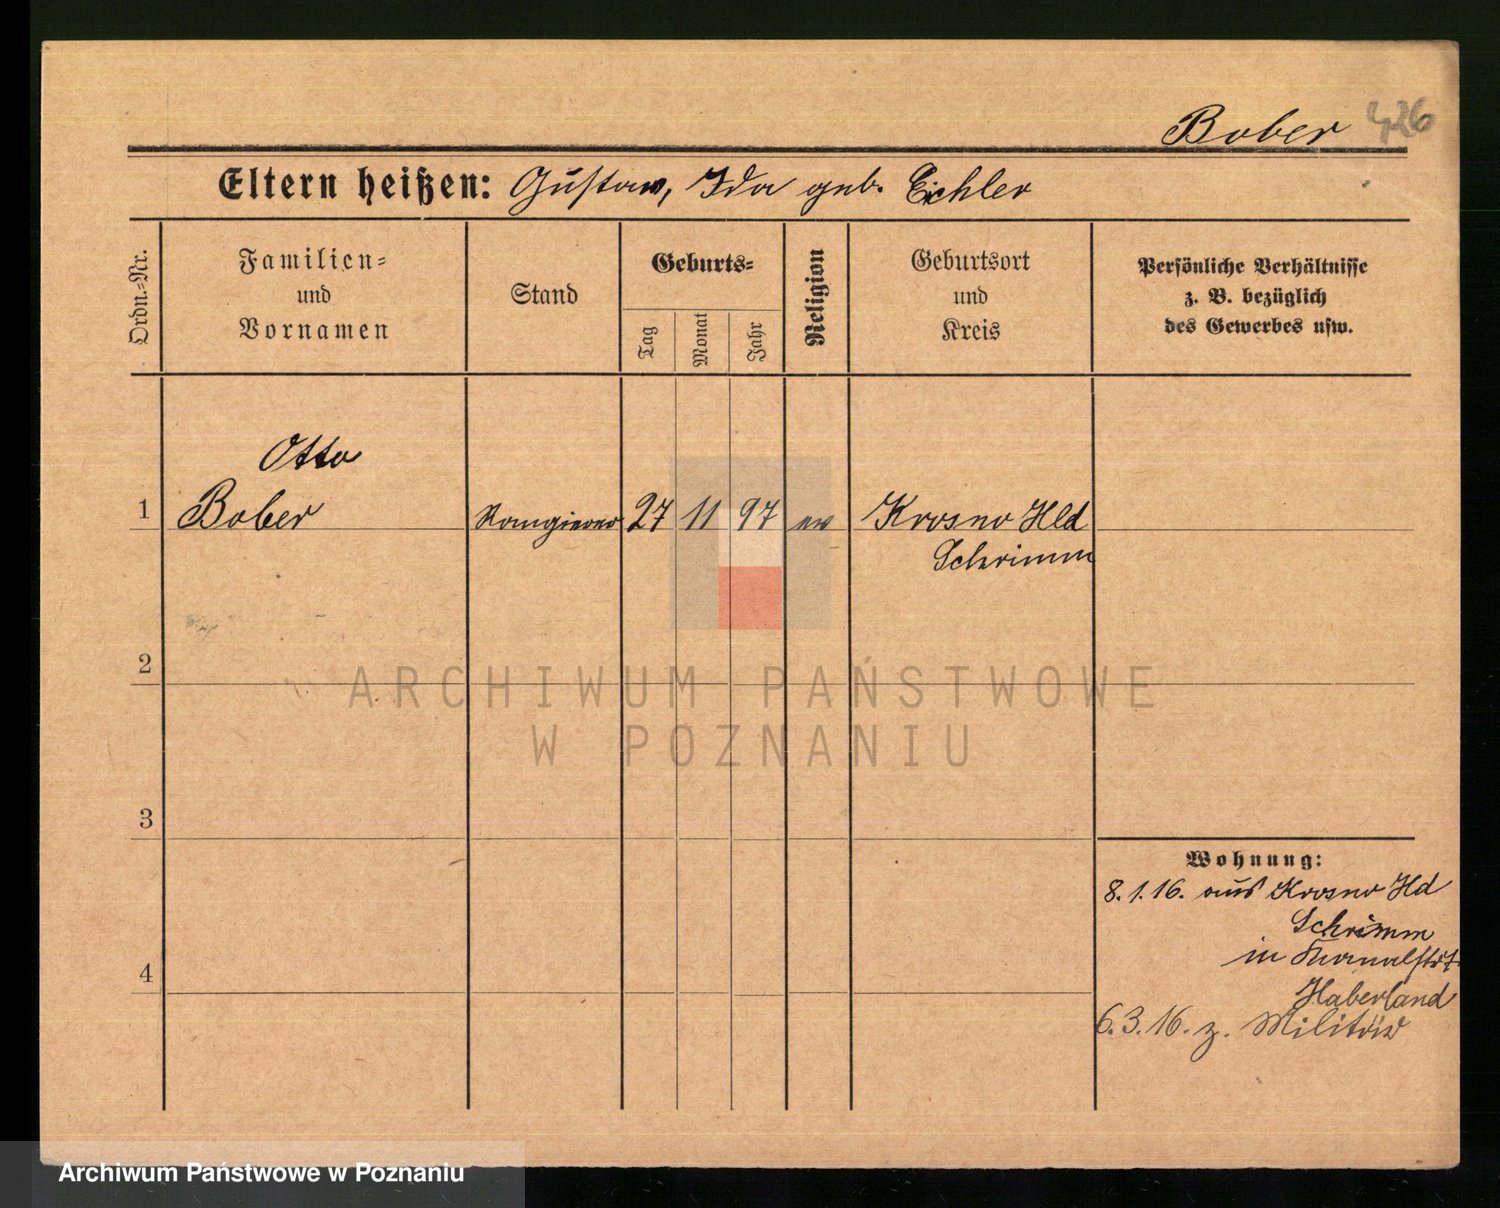 Bober 426
Eltern heißen: Gustav, Ida geb. Eichler
Ordn.-Nr.
Familien-
und
Vornamen
Stand
Geburts-
Tag
Monat
Jahr
Religion
Geburtsort
und
Kreis
Persönliche Verhältnisse
z. B. bezüglich
des Gewerbes usw.
Otto
1 Bober Rangierer 27 11 97 ev Krosno Hld
Schrimm
2
3
4
Wohnung:
8.1.16. aus Krosno Hld
Schrimm
in Kanalstr.
Haberland
6.3.16. z. Militär
ARCHIWUM PAŃSTWOWE
W POZNANIU
Archiwum Państwowe w Poznaniu